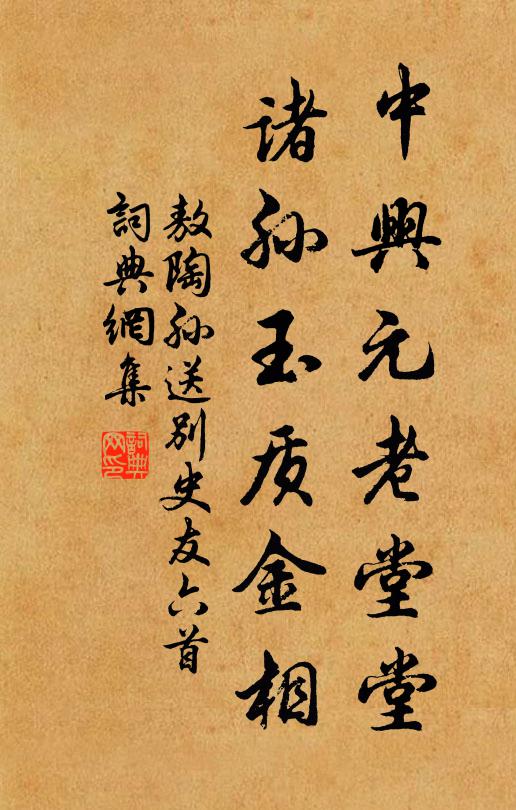 中興元老堂堂
诸孙玉质金相
敖陶孙送别史友六首
詞典網集
詞典網印